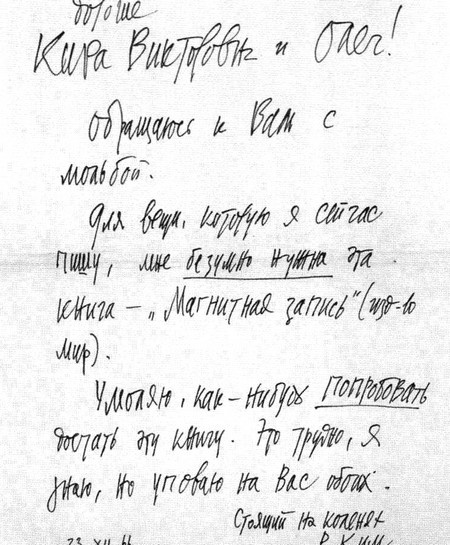 дорогие
Кира Викторовна и Олег!
Обращаюсь к Вам с
мольбой.
Для вещи, которую я сейчас
пишу, мне безумно нужна эта
книга – „Магнитная запись“ (изд-во
Мир).
Умоляю, как-нибудь попробовать
достать эту книгу. Это трудно, я
знаю, но уповаю на Вас обоих.
Стоящий на коленях
23 XII 66